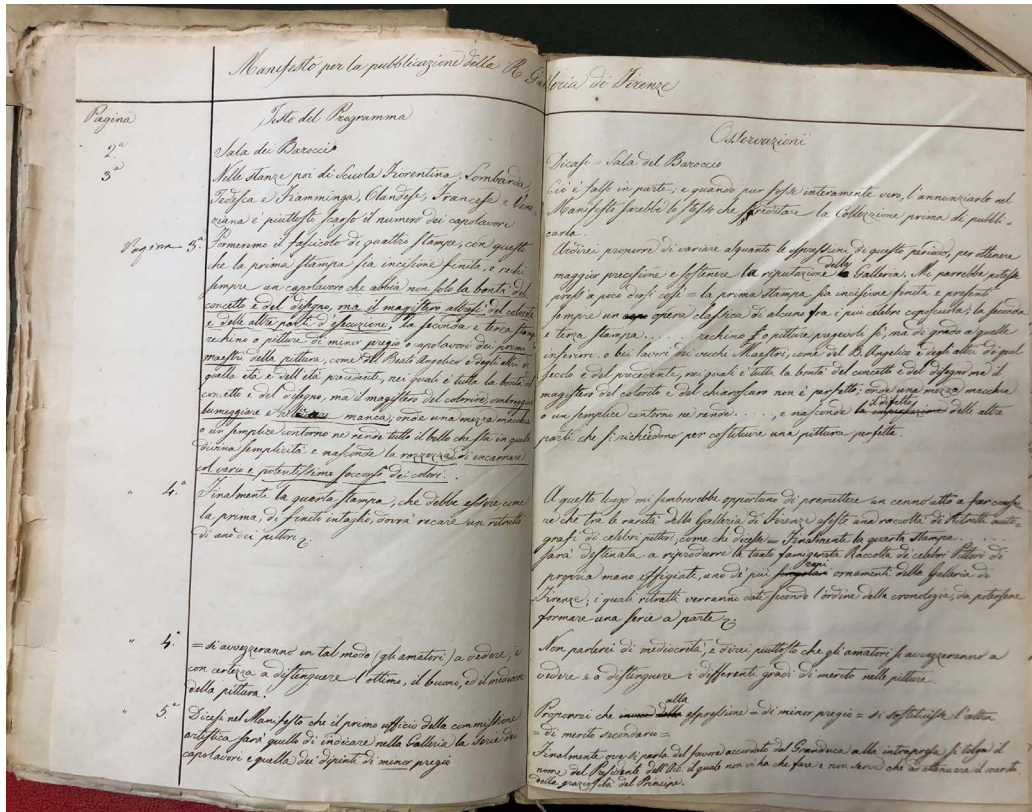 Manifesto per la pubblicazione della R Galleria di Firenze
Pagina
Testo del Programma
2.ª
Sala dei Barocci
3.ª
Nelle stanze poi di Scuola Fiorentina, Lombarda,
Tedesca e Fiamminga, Olandese, Francese e Vene-
ziana è piuttosto scarso il numero dei capolavori
Pagina 3.ª
Formeremo il fascicolo di quattro stampe, con questo
che la prima stampa sia incisione finita, e rechi
sempre un capolavoro che abbia non solo la bontà del
concetto e del disegno, ma il magistero altresì del colorito
e delle altre parti d'esecuzione; la seconda e terza stampa
rechino o pitture di minor pregio o capolavori dei primi
maestri della pittura, come del Beato Angelico e degli altri di
quella età e dell'età precedente, nei quali è tutta la bontà del
concetto e del disegno, ma il magistero del colorire, ombreggiare
lumeggiare e manca; onde una mezza macchia
o un semplice contorno ne rende tutto il bello che sta in quella
divina semplicità e nasconde la rozzezza di incarnare
col vario e potentissimo soccorso dei colori.
" 4.ª
Finalmente la quarta stampa, che debbe essere, come
la prima, di finito intaglio, dovrà recare un ritratto
di uno dei pittori
" 4.ª
= si avvezzeranno in tal modo (gli amatori) a vedere, e
con certezza a distinguere l'ottimo, il buono, ed il mediocre
della pittura.
" 5.ª
Dicesi nel Manifesto che il primo ufficio della commissione
artistica sarà quello di indicare nella Galleria la Serie dei
capolavori e quella dei dipinti di minor pregio
Osservazioni
Dicasi = Sala del Baroccio
Ciò è falso in parte; e quando pur fosse interamente vero, l'annunziarlo nel
Manifesto sarebbe lo stesso che screditare la Collezione prima di pubbli-
carla.
Ardirei proporre di variare alquanto le espressioni di questo periodo, per ottenere
maggior precisione e sostenere la riputazione della Galleria. Mi parrebbe potesse
press'a poco dirsi così = la prima stampa sia incisione finita e presenti
sempre un opera classica di alcuno fra i più celebri capiscuola; la seconda
e terza stampa . . . . . . rechino o pitture pregevoli sì, ma di grado a quelle
inferiore, o bei lavori dei vecchi Maestri, come del B. Angelico e degli altri di quel
secolo e del precedente, nei quali è tutta la bontà del concetto e del disegno ma il
magistero del colorito e del chiaroscuro non è perfetto; onde una mezza macchia
o un semplice contorno ne rende . . . . . , e nasconde il difetto delle altre
parti che si richiedono per costituire una pittura perfetta.
A questo luogo mi sembrerebbe opportuno di premettere un cenno atto a far conosce-
re che tra le rarità della Galleria di Firenze esiste una raccolta di Ritratti auto-
grafi di celebri pittori, come che dicesse = Finalmente la quarta stampa . . . .
sarà destinata a riprodurre la tanto famigerata Raccolta de' celebri Pittori di
propria mano effigiati, uno de' più rari ornamenti della Galleria di
Firenze; i quali ritratti verranno dati secondo l'ordine della cronologia, da potersene
formare una serie a parte
Non parlerei di mediocrità, e direi piuttosto che gli amatori si avvezzeranno a
vedere e a distinguere i differenti gradi di merito nelle pitture.
Proporrei che alla espressione = di minor pregio = si sostituisse l'altra
= di merito secondario =
Finalmente ove si parla del favore accordato dal Granduca alla intrapresa si tolga il
nome del Presidente dell'Acc. il quale non vi ha che fare e non serve che ad attenuare il merito
della graziosità del Principe.